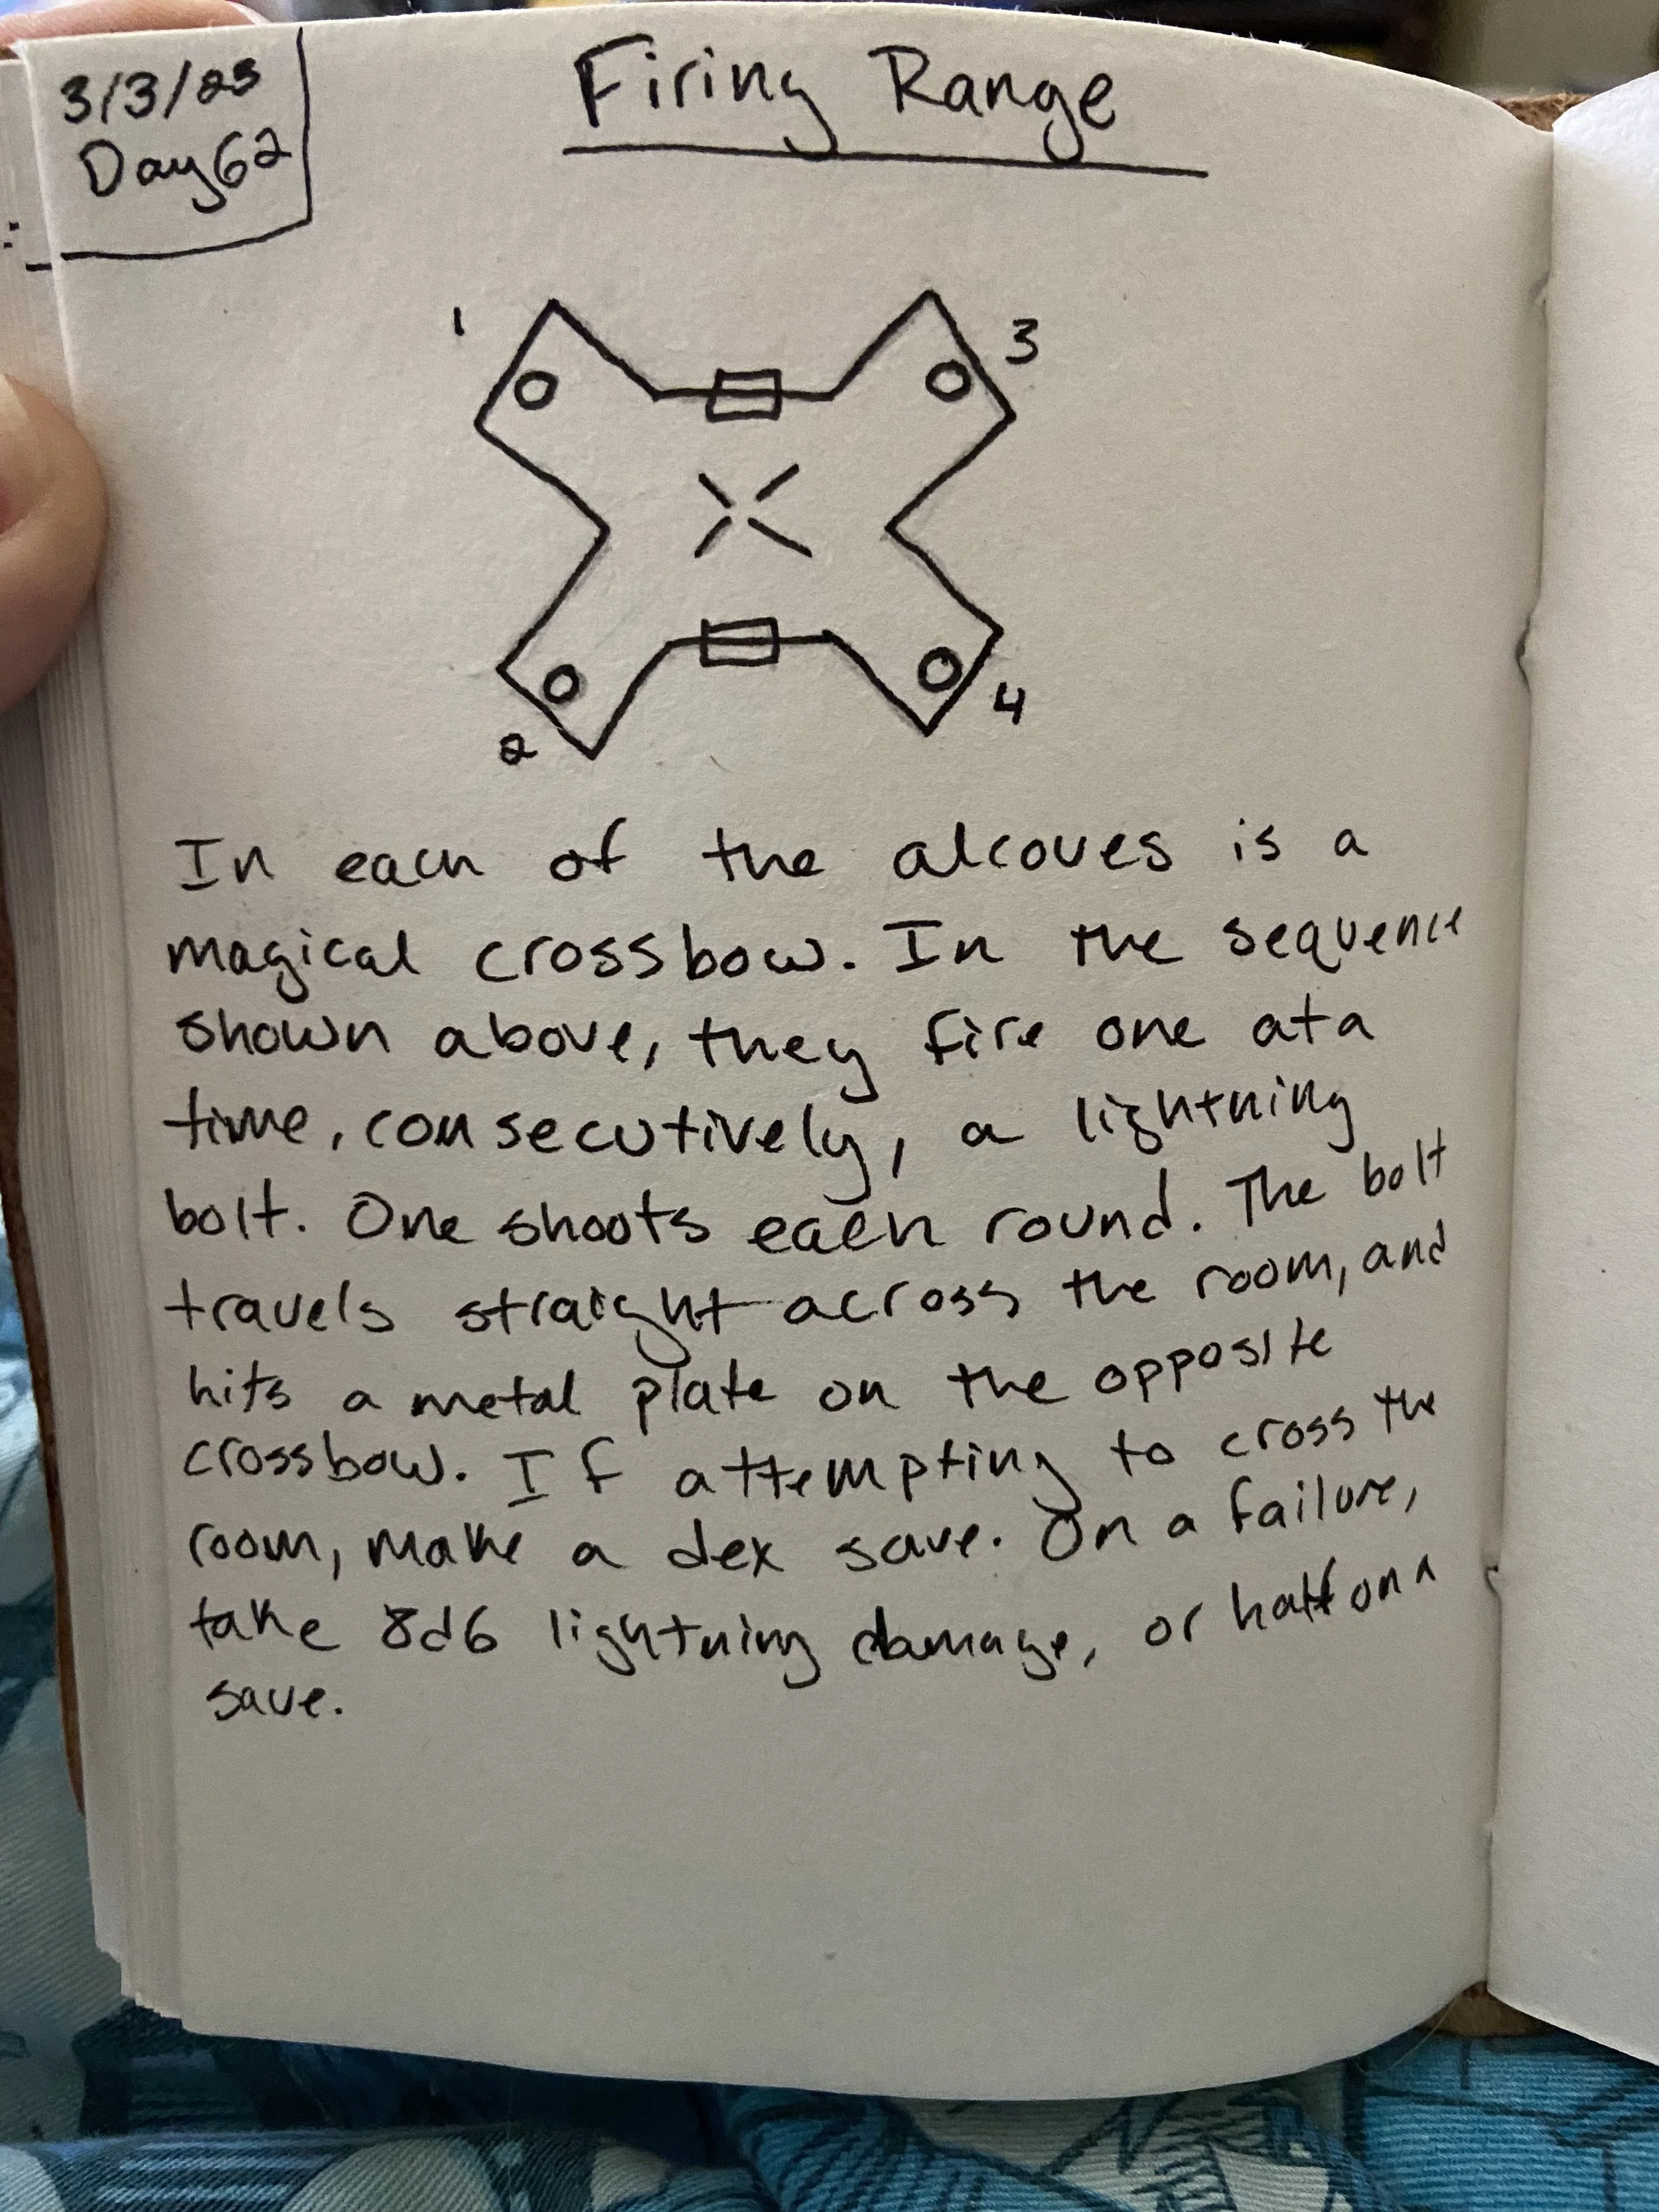 3/3/23
Day 62
Firing Range
1
3
2
4
In each of the alcoves is a
magical crossbow. In the sequence
shown above, they fire one at a
time, consecutively, a lightning
bolt. One shoots each round. The bolt
travels straight across the room, and
hits a metal plate on the opposite
crossbow. If attempting to cross the
room, make a dex save. On a failure,
take 8d6 lightning damage, or half on a
save.